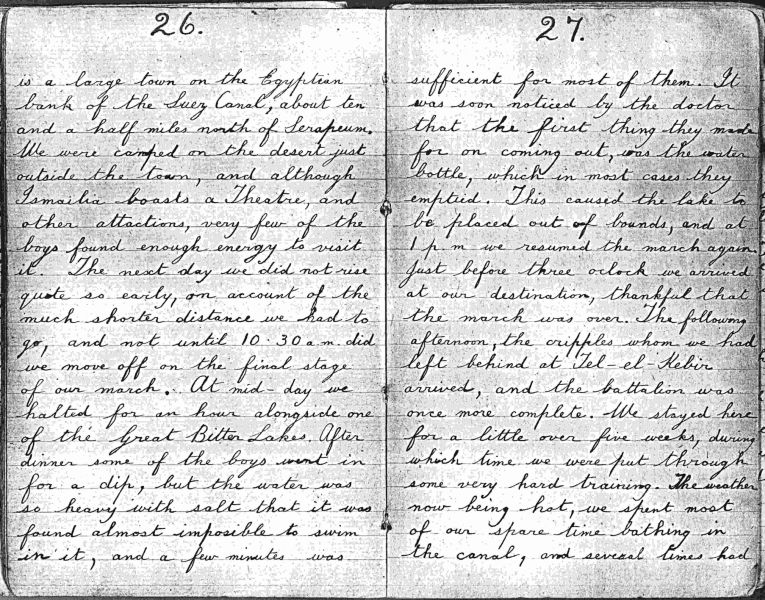 26.
is a large town on the Egyptian
bank of the Suez Canal, about ten
and a half miles north of Serapeum.
We were camped on the desert just
outside the town, and although
Ismailia boasts a Theatre, and
other attactions, very few of the
boys found enough energy to visit
it. The next day we did not rise
quote so early, on account of the
much shorter distance we had to
go, and not until 10.30 a.m. did
we move off on the final stage
of our march. At mid-day we
halted for an hour alongside one
of the Great Bitter Lakes. After
dinner some of the boys went in
for a dip, but the water was
so heavy with salt that it was
found almost imposible to swim
in it, and a few minutes was
27.
sufficient for most of them. It
was soon noticed by the doctor
that the first thing they made
for on coming out, was the water
bottle, which in most cases they
emptied. This caused the lake to
be placed out of bounds, and at
1 p m we resumed the march again.
Just before three oclock we arrived
at our destination, thankful that
the march was over. The following
afternoon, the cripples whom we had
left behind at Tel-el-Kebir
arrived, and the battalion was
once more complete. We stayed here
for a little over five weeks, during
which time we were put through
some very hard training. The weather
now being hot, we spent most
of our spare time bathing in
the canal, and several times had